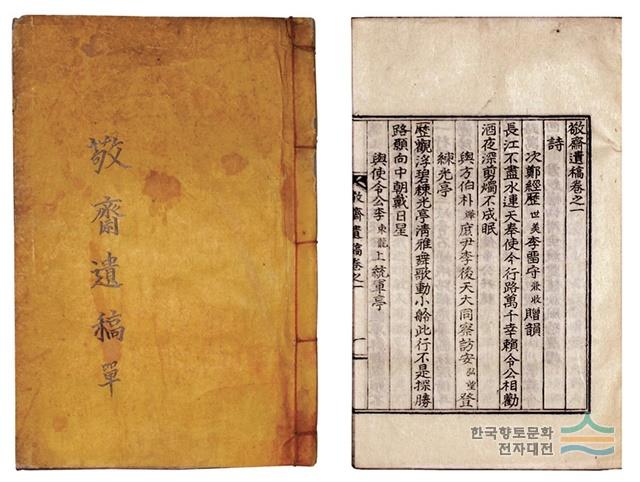 敬齋遺稿 單
敬齋遺稿卷之一
詩
次鄭經歷世美李留守兼收贈韻
長江不盡水連天奉使令行路萬千幸賴令公相勸
酒夜深剪燭不成眠
與方伯朴曄庶尹李後天大同察訪安弘重登
練光亭
歷觀浮碧練光亭淸雅舞歌動小舲此行不是探勝
路願向中朝戴日星
與使令公李東龍上統軍亭
敬齋遺稿卷之一
한국향토문화
전자대전